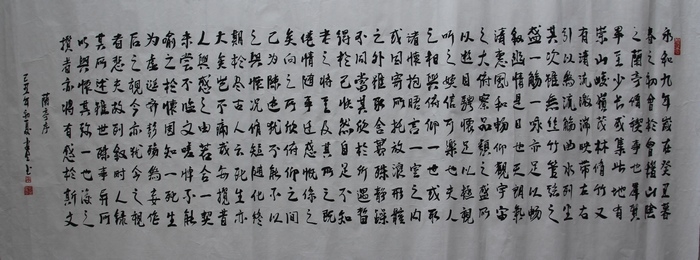 永和九年歲在癸丑暮
春之初會於會稽山陰
之蘭亭脩禊事也羣賢
畢至少長咸集此地有
崇山峻嶺茂林脩竹又
有清流激湍映帶左右
引以為流觴曲水列坐
其次雖無絲竹管絃之
盛一觴一詠亦足以暢
敘幽情是日也天朗氣
清惠風和暢仰觀宇宙
之大俯察品類之盛所
以遊目騁懷足以極視
聽之娛信可樂也夫人
之相與俯仰一世或取
諸懷抱晤言一室之內
或因寄所託放浪形骸
之外雖取舍萬殊靜躁
不同當其欣於所遇暫
得於己怏然自足不知
老之將至及其所之既
倦情隨事遷感慨係之
矣向之所欣俛仰之間
已為陳跡猶不能不以
之興懷況脩短隨化終
期於盡古人云死生亦
大矣豈不痛哉每攬昔
人興感之由若合一契
未嘗不臨文嗟悼不能
喻之於懷固知一死生
為虛誕齊彭殤為妄作
後之視今亦猶今之視
昔悲夫故列敘時人錄
其所述雖世殊事異所
以興懷其致一也後之
攬者亦將有感於斯文
蘭亭序